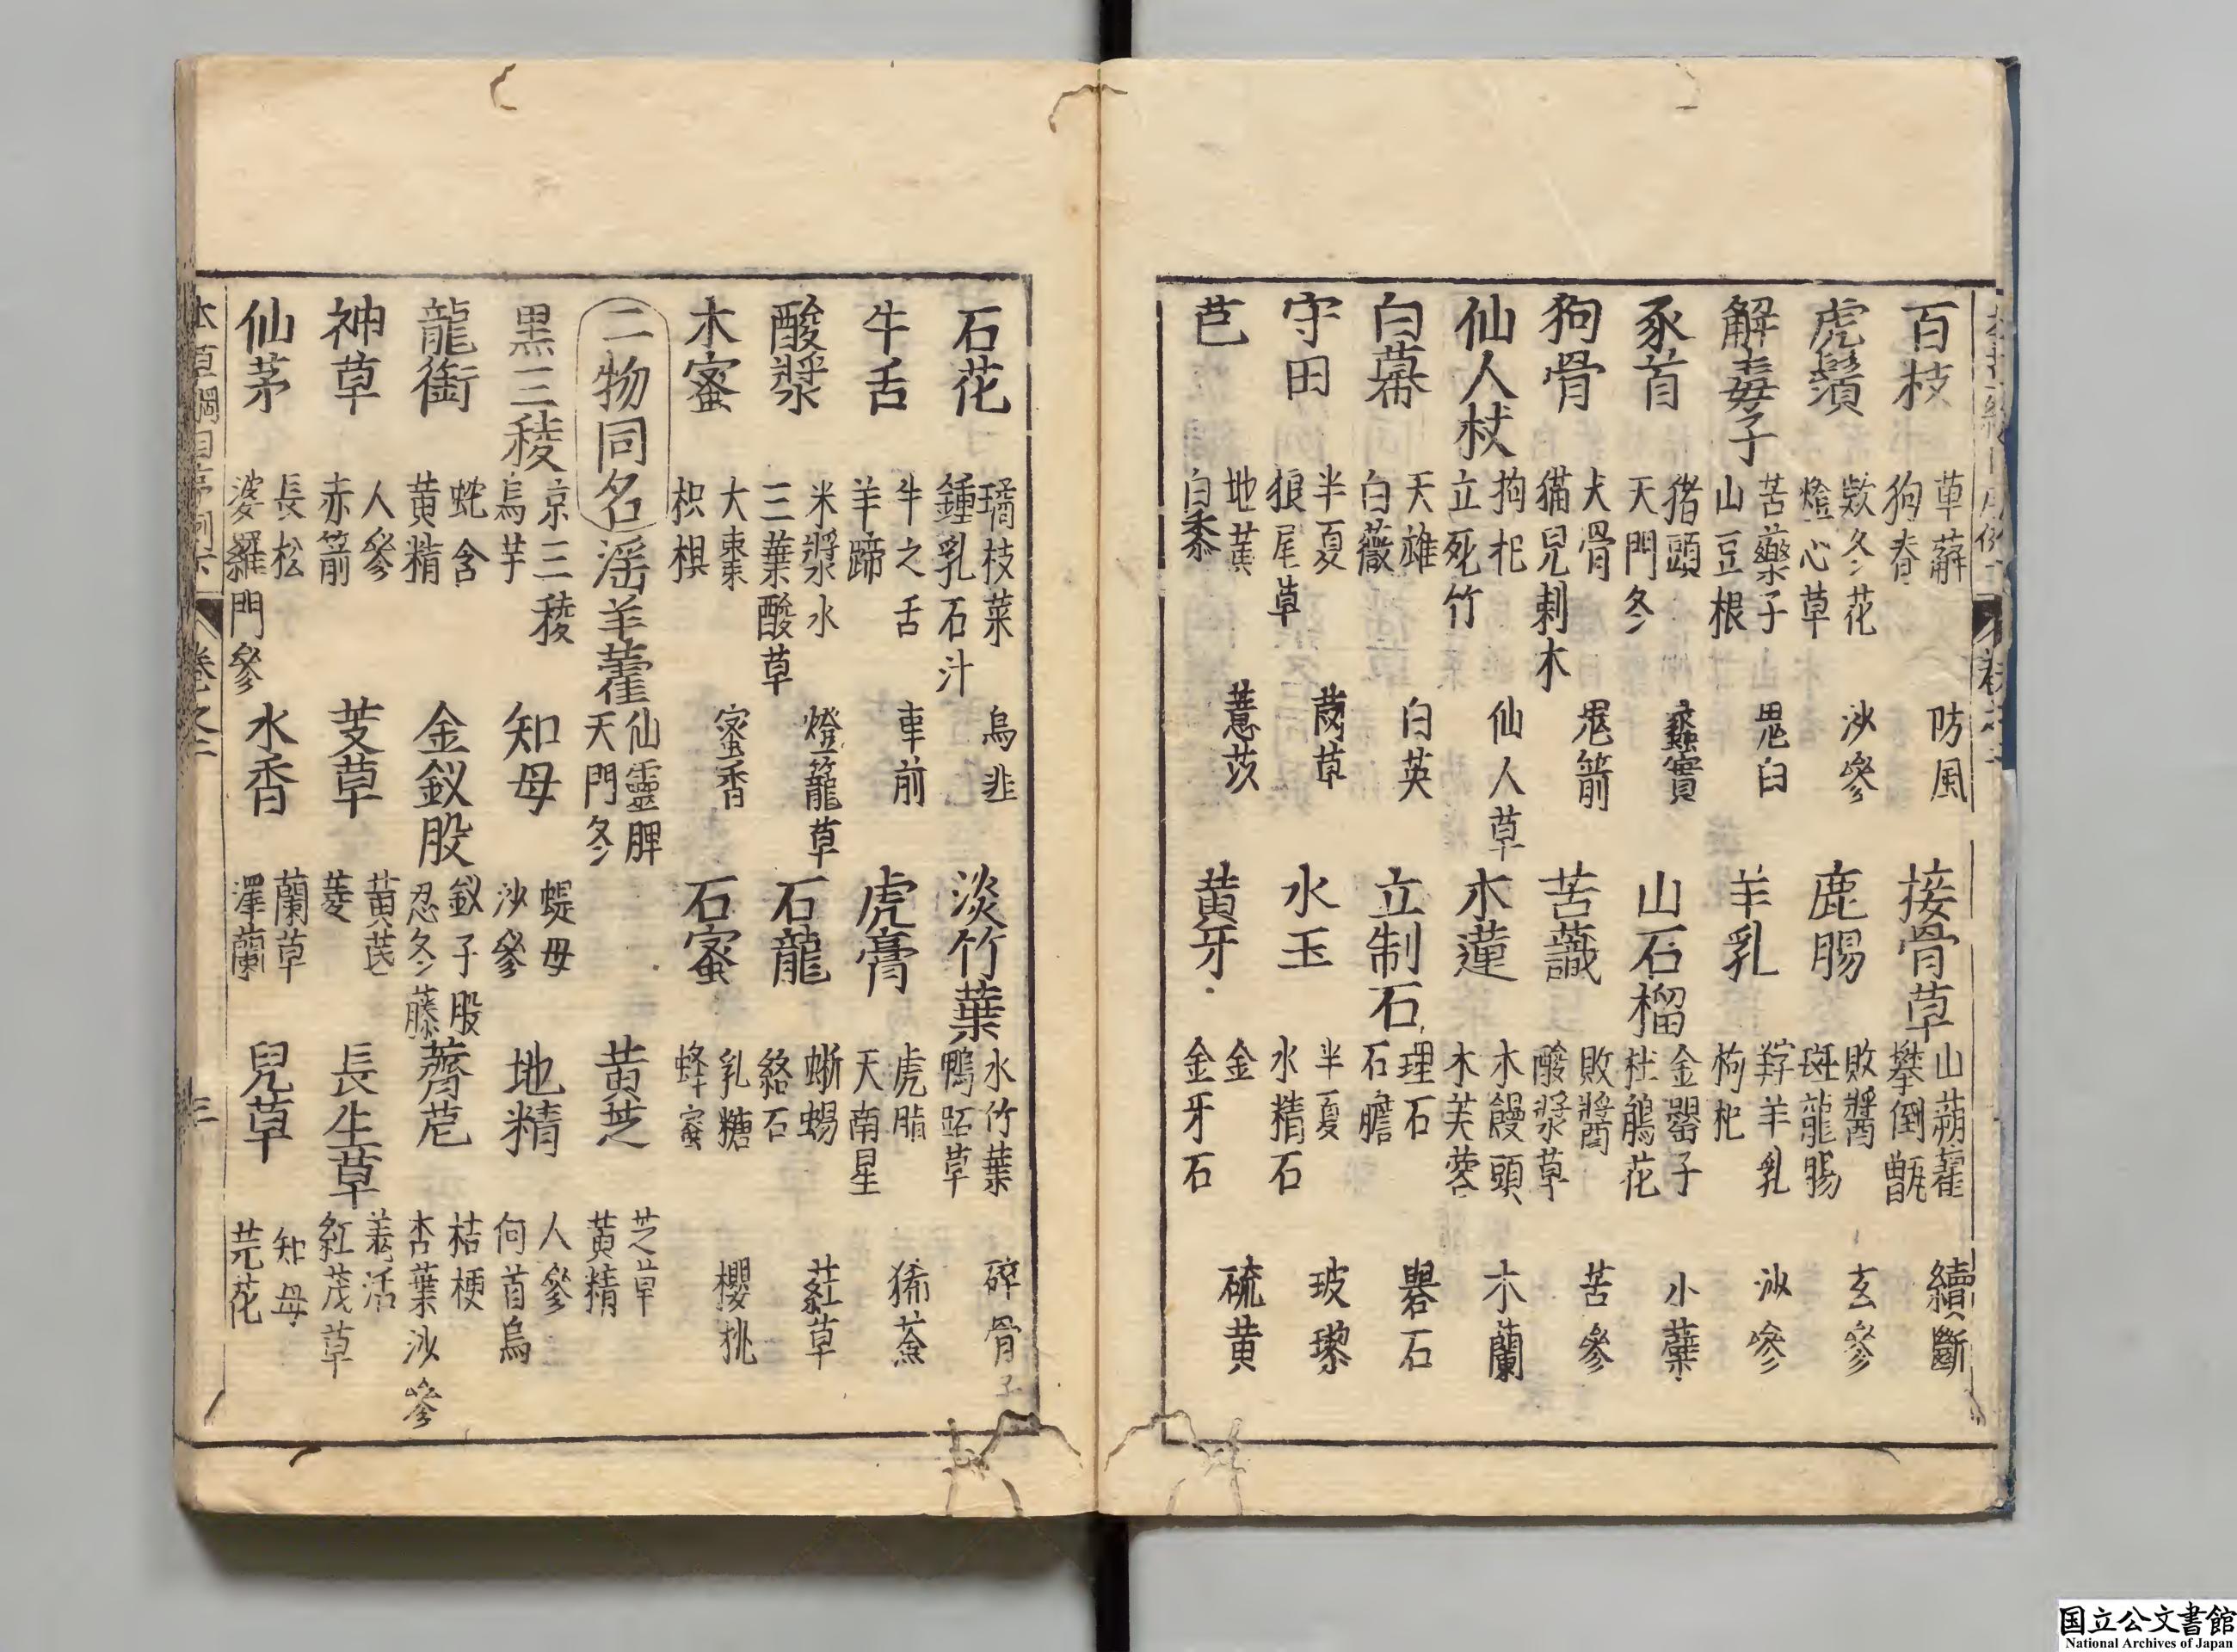 百枝 草薢 狗脊 防風 接骨草 山蒴藋 攀倒甑 續斷
虎鬚 欵冬花 燈心草 沙參 鹿腸 敗醬 斑龍腸 玄參
解毒子 苦藥子 山豆根 鬼臼 羊乳 羜羊乳 枸杞 沙參
豕首 猪頭 天門冬 蠡實 山石榴 金罂子 杜鵑花 小蘗
狗骨 犬骨 猫兒刺木 鬼箭 苦蘵 敗醬 酸漿草 苦參
仙人杖 枸杞 立死竹 仙人草 木蓮 木饅頭 木芙蓉 木蘭
白幕 天雄 白薇 白英 立制石 理石 石膽 礜石
守田 半夏 狼尾草 䓯草 水玉 半夏 水精石 玻瓈
芑 地黃 白黍 薏苡 黄牙 金 金牙石 硫黄
石花 璚枝菜 鍾乳石汁 烏韭 淡竹葉 水竹葉 鴨跖草 碎骨子
牛舌 牛之舌 羊蹄 車前 虎膏 虎脂 天南星 豨薟
酸漿 米漿水 三葉酸草 燈籠草 石龍 蜥蜴 絡石 葒草
木蜜 大棗 枳椇 蜜香 石蜜 乳糖 蜂蜜 櫻桃
二物同名 淫羊藿 仙靈脾 天門冬 黄芝 芝草 黄精
黑三稜 京三稜 烏芋 知母 蝭母 沙參 地精 人參 何首烏
龍銜 蛇含 黄精 金釵股 釵子股 忍冬藤 薺苨 桔梗 杏葉沙參
神草 人參 赤箭 芰草 黄茋 菱 長生草 羌活 紅茂草
仙茅 長松 婆羅門參 水香 蘭草 澤蘭 兒草 知母 芫花
国立公文書館
National Archives of Japan